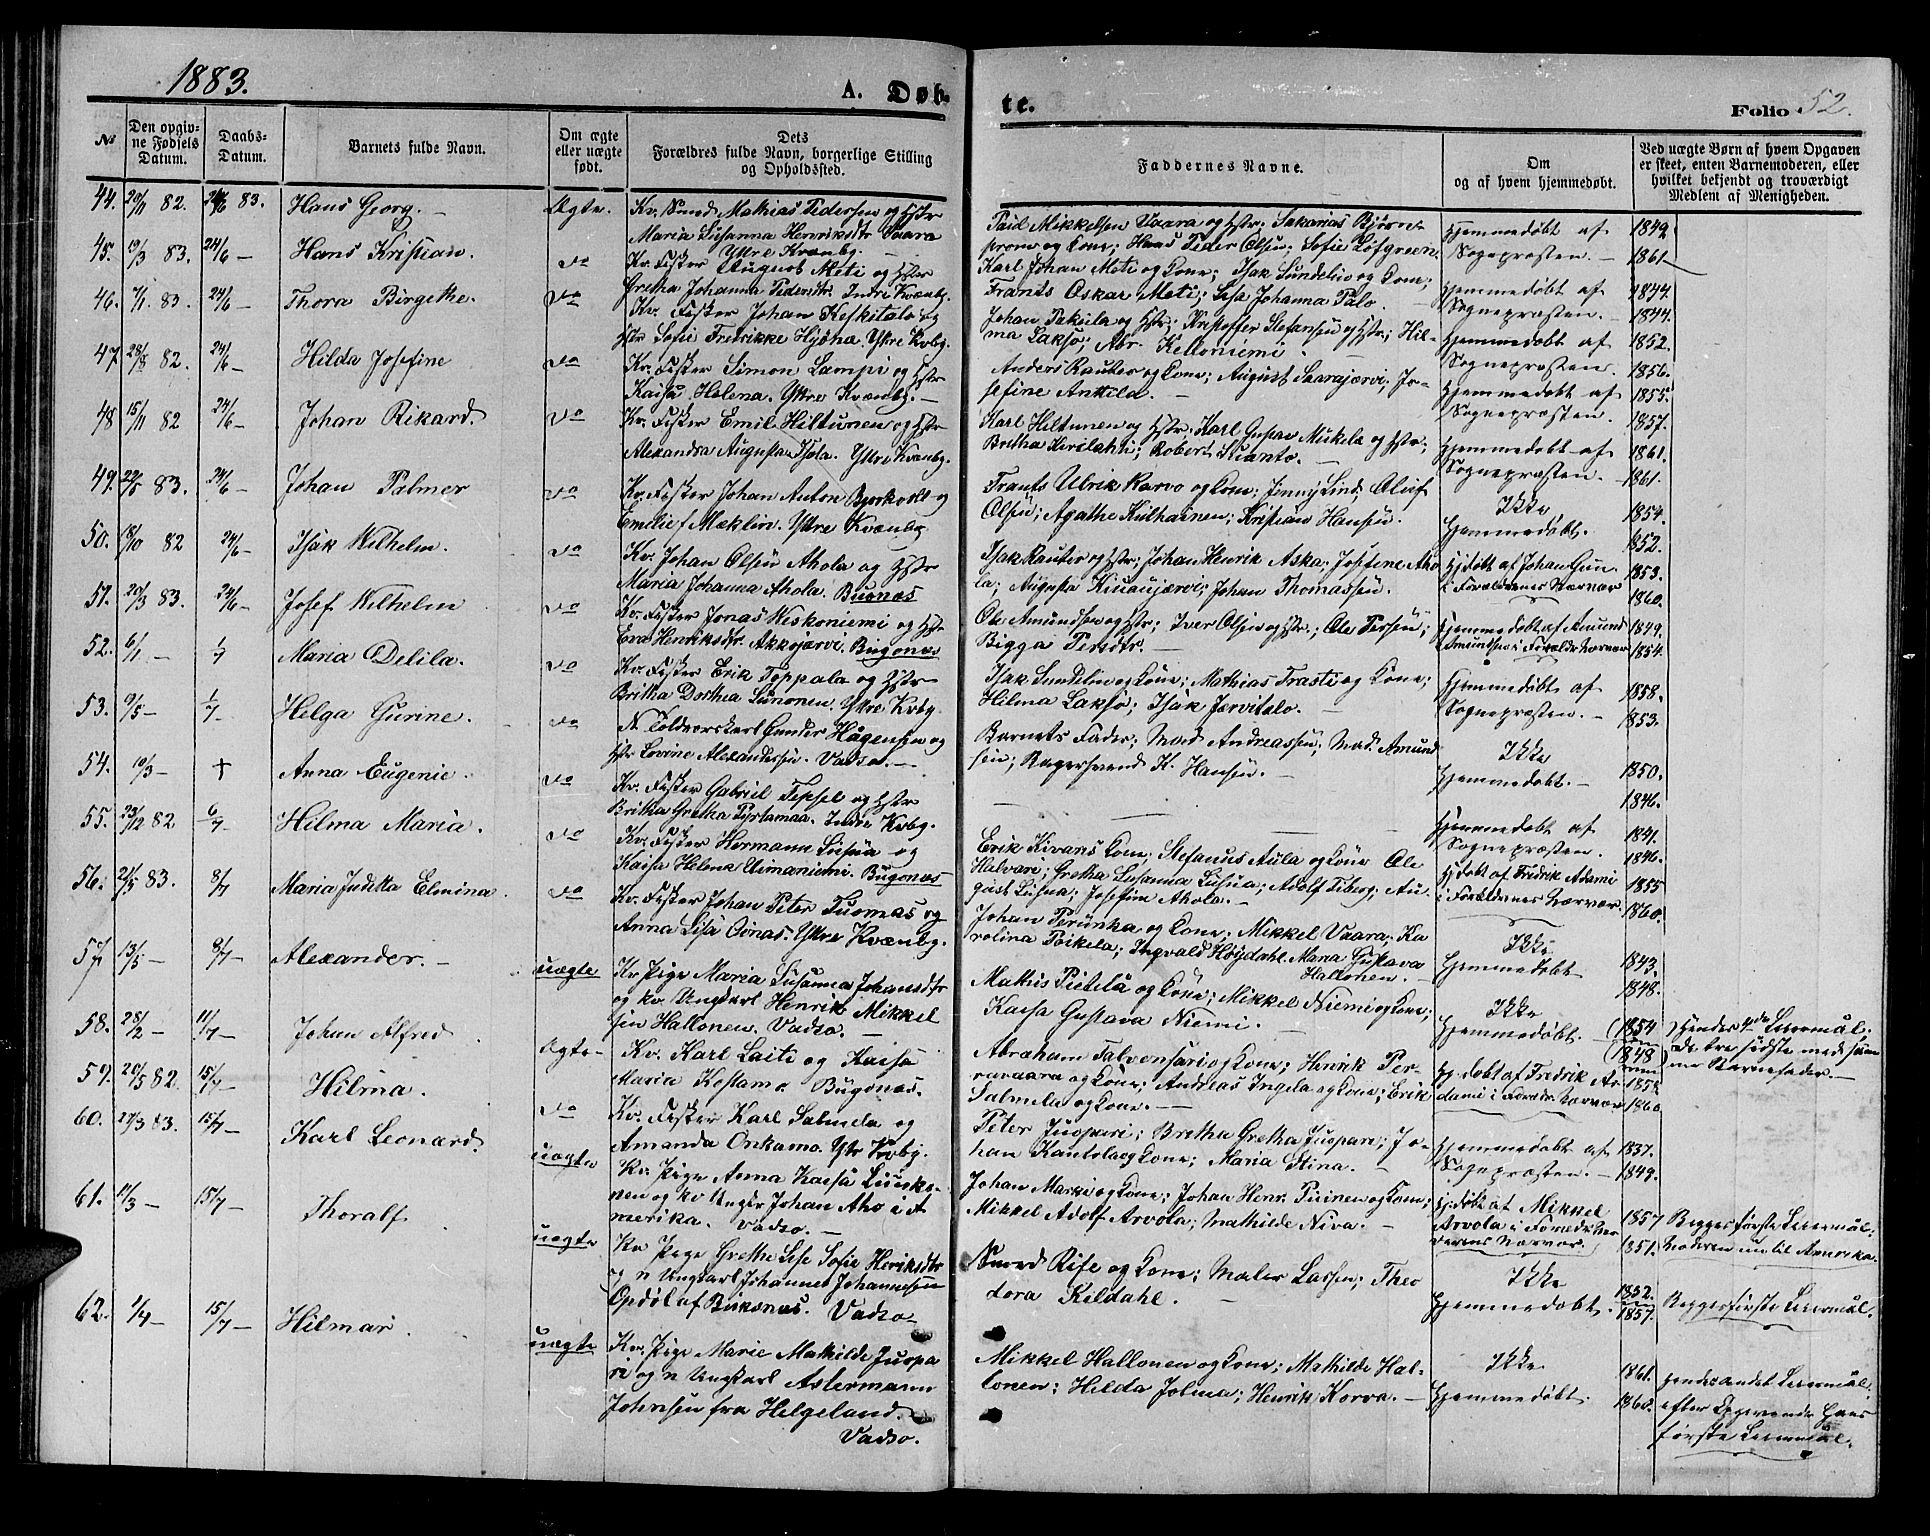 1883.
A. Døb-
te.
Folio 52.
№
Den opgiv-
ne Fødsels
Datum.
Daabs-
Datum.
Barnets fulde Navn.
Om ægte
eller uægte
født.
Dets
Forældres fulde Navn, borgerlige Stilling
og Opholdssted.
Faddernes Navne.
Om
og af hvem hjemmedøbt.
Ved uægte Børn af hvem Opgaven
er skeet, enten Barnemoderen, eller
hvilket bekjendt og troværdigt
Medlem af Menigheden.
44. 20/11 82. 24/6 83. Hans Georg. — Ægte.
Kv. Mathias Pedersen og Hstr
Maria Susanna Henriksdtr Vaara
Yttre Kvænbg.
Paul Mikkelsen Vaara og Hstr; Sakarias Bjørn-
strøm og Kone; Hans Peder Olsen; Sofie Löfgreen.
Hjemmedøbt af
Sognepræsten. —
1849
1861
45. 19/3 83. 24/6 — Hans Kristian. do
Kv. Fisker August Meti og Hstr
Gretha Johanna Pedersdtr. Indre Kvænbg.
Karl Johan Meti og Kone; Isak Sundelin og Kone;
Frants Oskar Meti; Lisa Johanna Palo.
Hjemmedøbt af
Sognepræsten. —
1844.
1844.
46. 7/1 83. 24/6 — Thora Birgethe. do
Kv. Fisker Johan Keskitalo og
Hstr Sofie Fredrikke Yttre Kvbg.
Johan Takula og Hstr; Kristoffer Stefansen og Hstr; Hil-
ma Lakso; Abr. Kelloniemi.
Hjemmedøbt af
Sognepræsten.
1852.
1856.
47. 28/8 82. 24/6 — Hilda Josefine do
Kv. Fisker Simon Lampi og Hstr
Kaisa Helena. Yttre Kvænbg. —
Anders Rautio og Kone; August Saarajærvi; Jo-
sefine Anttila. —
Hjemmedøbt af
Sognepræsten.
1855.
1857.
48 15/11 82 24/6 — Johan Rikard. do
Kv. Fisker Emil Hiltunen og Hstr
Alexandra Augusta Isola. Yttre Kvænbg.
Karl Hiltunen og Hstr; Karl Gustav Mickela og Hstr;
Bretha Kerilahti; Robert Suanto. —
Hjemmedøbt af
Sognepræsten.
1861.
1861.
49. 22/5 83. 24/6 — Johan Palmer do
Kv. Fisker Johan Anton og
Emilie f Mæklin. Yttre Kvænbg
Frants Ulrik Karvo og Kone; Jenny Lind; Oluf
Olsen; Agathe Kulhainen; Kristian Hansen.
Ikke
Hjemmedøbt.
1854.
1852.
50. 18/10 82 24/6 — Isak Wilhelm. do
Kv. Johan Olsen Ahola og Hstr
Maria Johanna Ahola. Bugønæs
Isak Rautio og Hstr; Johan Henrik Aska; Josefine Aho-
la; Augusta Kiuaujærvi; Johan Thomassen.
Hj. døbt af Johan
i Forældrenes Nærvær
1853.
1860.
51. 20/3 83. 24/6 — Josef Wilhelm do
Kv. Fisker Jonas Weskoniemi og Hstr
Eva Henriksdtr. Akkojærvi. Bugønæs
Ole Amundsen og Hstr; Iver Olsen og Hstr.; Ole Persen;
Bigga Persdtr. —
Hjemmedøbt af Amund
Amundsen i Forældr. Nærvær
1849.
1854.
52. 6/1 — 1/7 Maria Delila. do
Kv. Fisker Erik Toppala og Hstr
Britha Dorthea Lunonen. Yttre Kvbg.
Isak Sundelin og Kone; Mathias Trasti og Kone;
Hilma Lakso; Isak Jærvitalo. —
Hjemmedøbt af
Sognepræsten. —
1858.
1853.
53. 9/5 — 1/7 Helga Gurine. do
N. Toldvorskarl Gunder Hågensen og
Hstr Lovine Alexandersen. Vadsø. —
Barnets Fader; Mad Andreassen; Mad. Amund
sen; Bagersvend K. Hansen. —
Ikke
Hjemmedøbt. —
1850.
1846.
54. 10/3 — + Anna Eugenie. do
Kv. Fisker Gabriel Tepsel og Hstr
Britha Gretha Pyrtamaa. Indre Kvbg.
Hjemmedøbt af
Sognepræsten.
1841.
1846.
55. 23/12 82 6/7 — Hilma Maria. do
Kv. Fisker Hermann Lusua og
Kaisa Helena Uimaniemi. Bugønæs
Erik Kivaris Kone; Stefanus Aula og Kone Ole
Halvari; Gretha Susanna Lusua; Adolf Tiberg; Au-
gust Lusua; Josefine Ahola. —
Hj døbt af Fredrik Adami
i Forældrenes Nærvær.
1855
1860.
56. 21/5 83. 8/7 Maria Juditta Elmina. do
Kv. Fisker Johan Peter Tuomas og
Anna Lisa Oinas. Yttre Kvænbg.
Johan Perunka og Kone; Mikkel Vaara; Ka
rolina Poikela; Ingvald Høydahl. Maria Gustava
Hallonen. —
Ikke
Hjemmedøbt
1843.
1848.
57 13/5 — 8/7 — Alexander. — uægte
Kv. Pige Maria Susanna Johansdtr
og kv. Ungkarl Henrik Mikkel
sen Hallonen. Vadsø. —
Mathis Pietilä og Kone; Mikkel Niemi og Kone;
Kaisa Gustava Niemi. —
Ikke
Hjemmedøbt.
1854
1848
Hendes 4de Leiermål.
De tre sidste med sam
me Barnefader. —
58. 28/2 — 11/7 — Johan Alfred. Ægte —
Kv. Karl Laiti og Kaisa
Maria Kostamo Bugønæs.
Abraham Talvensaari og Kone; Henrik Per-
ravaara og Kone; Andreas Ingela og Kone; Erik
Salmela og Kone. —
Hj. døbt af Fredrik A-
dami i Forældr. Nærvær
1858
1860
59. 20/5 82. 15/7 — Hilma. do
Kv. Fisker Karl Salmela og
Amanda Onkamo. Ytr Kvbg.
Peter Juopari; Bretha Gretha Juopari; Jo-
han Kantola og Kone; Maria Stina. —
Hjemmedøbt af
Sognepræsten. —
1837.
1849.
60. 27/3 83. 15/7 — Karl Leonard. uægte
Kv. Pige Anna Kaisa
nen og kv Ungkr Johan Aho i A
merika. Vadsø. —
Johan Marki og Kone; Johan Henr. Puinen og Kone;
Mikkel Adolf Arvola; Mathilde Niva. —
Hj. døbt af Mikkel
Arvola i
Nærvær.
1857
1851.
Begges første Leiermål.
Faderen nu til Amerika.
61. 17/3 — 15/7 — Thoralf uægte
Kv Pige Grethe Lise Sofie Henriksdtr
og n Ungkarl Johannes Johannesen
Opdøl af Buksnæs. Vadsø —
Smed Rise og Kone; Maler Lassen; Theo
dora Kildahl. —
Ikke
Hjemmedøbt.
1852.
1857.
Begges første Leiermål.
62. 1/4 — 15/7 — Hilmar. uægte
Kv. Pige Marie Mathilde Juopa
ri og n Ungkarl Astermann
Johnsen fra Helgeland.
Vadsø.
Mikkel Hallonen og Kone; Mathilde Hal-
lonen; Hilda Jolma; Henrik Korva. —
Ikke
Hjemmedøbt.
1861.
1860.
Hendes andet Leiermål.
efter Opgivende Hans
første Leiermål.